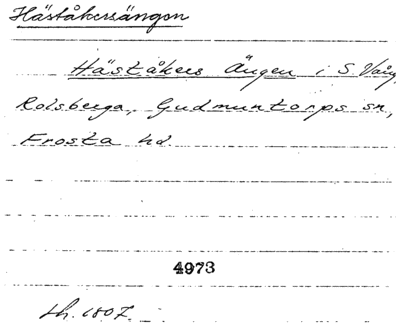 Häståkersängen
Häståkers Ängen i S. Vång,
Rolsberga, Gudmuntorps sn,
Frosta hd.
4973
Lh. 1807.